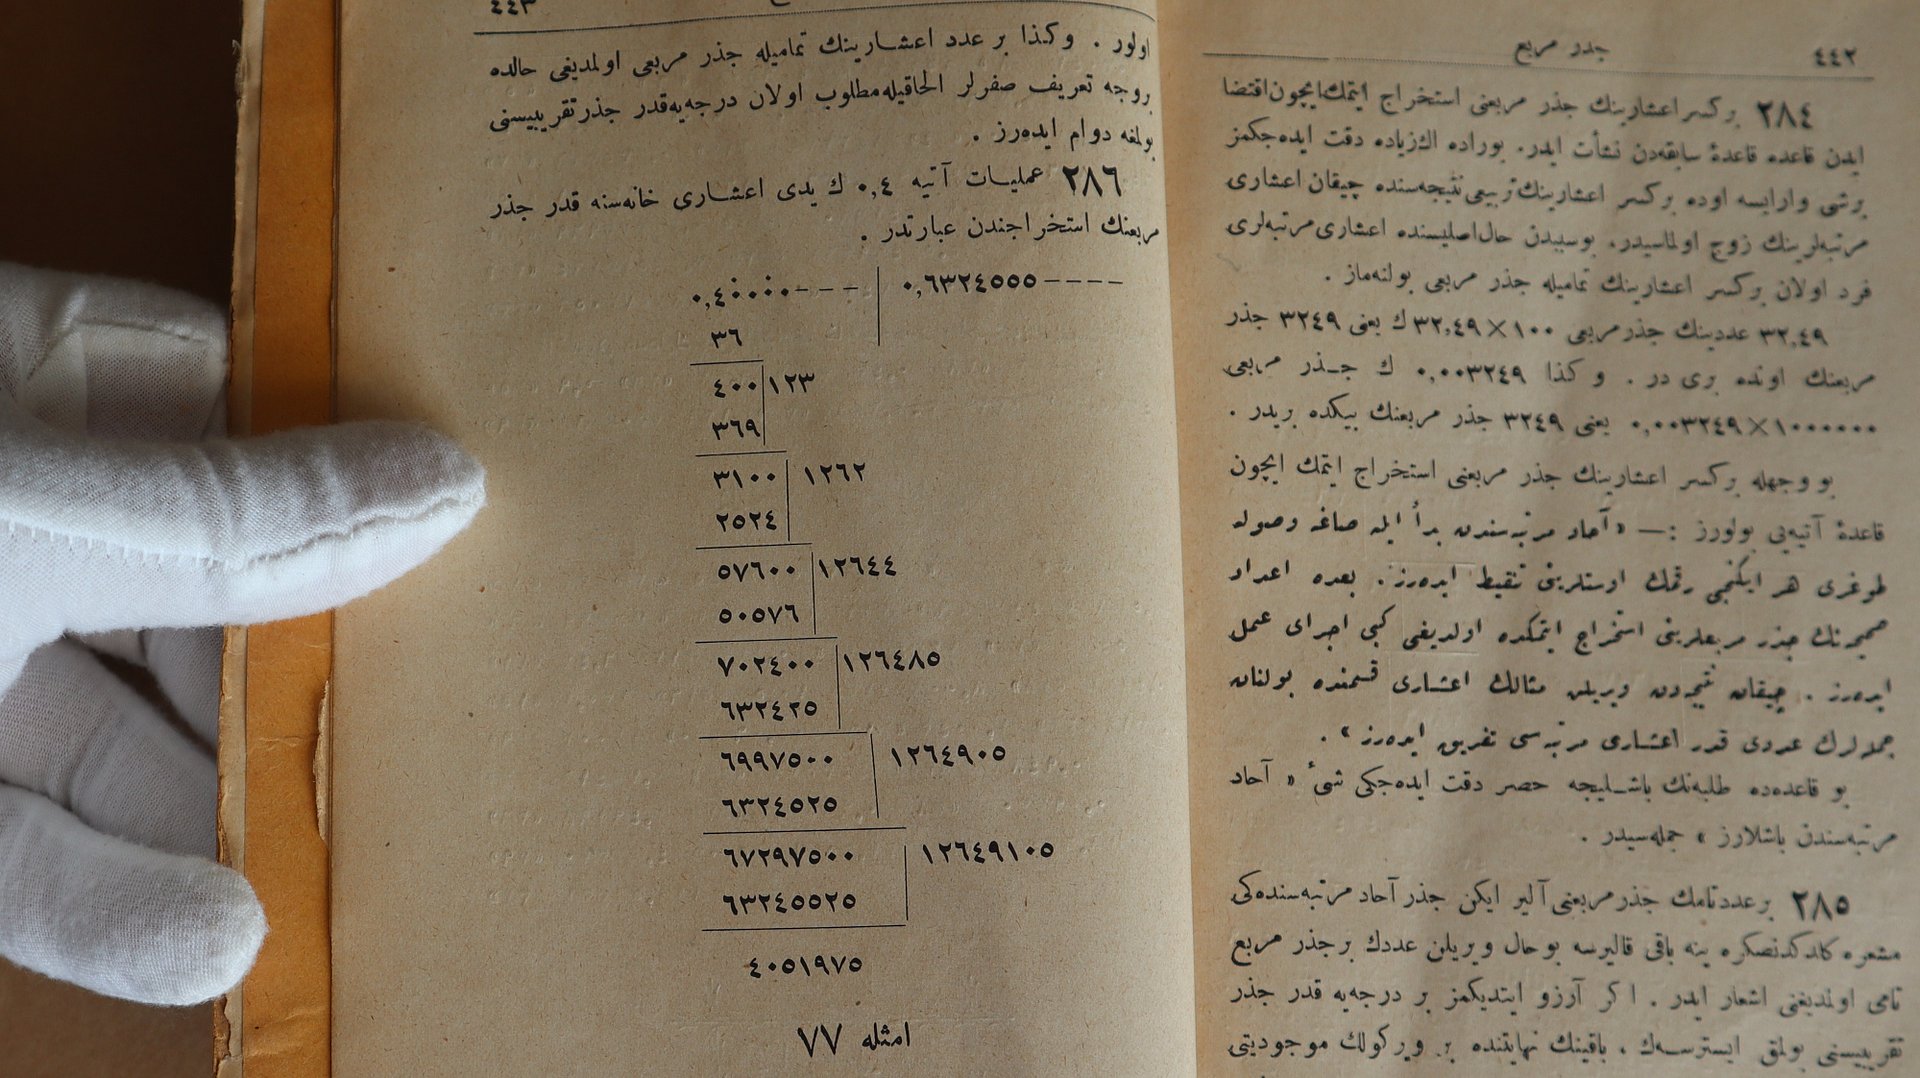 ٤٤٢ جذر مربع
٢٨٤ بر كسر اعشارينك جذر مربعنى استخراج ايتمك ايچون اقتضا
ايدن قاعده قاعدۀ سابقه‌دن نشأت ايدر. بوراده اك زياده دقت ايده‌جكمز
برشى وارايسه اوده بر كسر اعشارينك تربيعى نتيجه‌سنده چيقان اعشارى
مرتبه‌لرينك زوج اولماسيدر. بوسببدن حال اصليسنده اعشارى مرتبه‌لرى
فرد اولان بركسر اعشارينك تماميله جذر مربعى بولنه‌ماز.
٣٢,٤٩ عددينك جذر مربعى ١٠٠×٣٢,٤٩ ك يعنى ٣٢٤٩ جذر
مربعنك اونده برى در. وكذا ٠,٠٠٣٢٤٩ ك جذر مربعى
١٠٠٠٠٠٠×٠,٠٠٣٢٤٩ يعنى ٣٢٤٩ جذر مربعنك بيكده بريدر.
بو وجهله بر كسر اعشارينك جذر مربعنى استخراج ايتمك ايچون
قاعدۀ آتيه‌يى بولورز :— «آحاد مرتبه‌سندن بدأ ايله صاغه وصوله
طوغرى هر ايكنجى رقمك اوستلرينى تنقيط ايده‌رز. بعده اعداد
صحيحه‌نك جذر مربعلرينى استخراج ايتمكده اولديغى كبى اجراى عمل
ايده‌رز. چيقان نتيجه‌دن ويريلن مثالك اعشارى قسمنده بولنان
جمله‌لرك عددى قدر اعشارى مرتبه‌سى تفريق ايده‌رز».
بو قاعده‌ده طلبه‌نك باشليجه حصر دقت ايده‌جكى شئ «آحاد
مرتبه‌سندن باشلارز» جمله‌سيدر.
٢٨٥ بر عدد تامك جذر مربعنى آلير ايكن جذر آحاد مرتبه‌سنده‌كى
مشعره كلدكدنصكره ينه باقى قاليرسه بو حال ويريلن عددك بر جذر مربع
تامى اولمديغنى اشعار ايدر. اكر آرزو ايتديكمز بر درجه‌يه قدر جذر
تقريبيسنى بولمق ايسترسه‌ك، باقينك نهايتنده بر ويركولك موجوديتى
٤٤٣
اولور. وكذا بر عدد اعشارينك تماميله جذر مربعى اولمديغى حالده
بروجه تعريف صفرلر الحاقيله مطلوب اولان درجه‌يه قدر جذر تقريبيسنى
بولمغه دوام ايده‌رز.
٢٨٦ عمليات آتيه ٠,٤ ك يدى اعشارى خانه‌سنه قدر جذر
مربعنك استخراجندن عبارتدر.
٠,٤٠٠٠٠--- | ٠,٦٣٢٤٥٥٥----
٣٦
٤٠٠ | ١٢٣
٣٦٩
٣١٠٠ | ١٢٦٢
٢٥٢٤
٥٧٦٠٠ | ١٢٦٤٤
٥٠٥٧٦
٧٠٢٤٠٠ | ١٢٦٤٨٥
٦٣٢٤٢٥
٦٩٩٧٥٠٠ | ١٢٦٤٩٠٥
٦٣٢٤٥٢٥
٦٧٢٩٧٥٠٠ | ١٢٦٤٩١٠٥
٦٣٢٤٥٥٢٥
٤٠٥١٩٧٥
امثله ٧٧